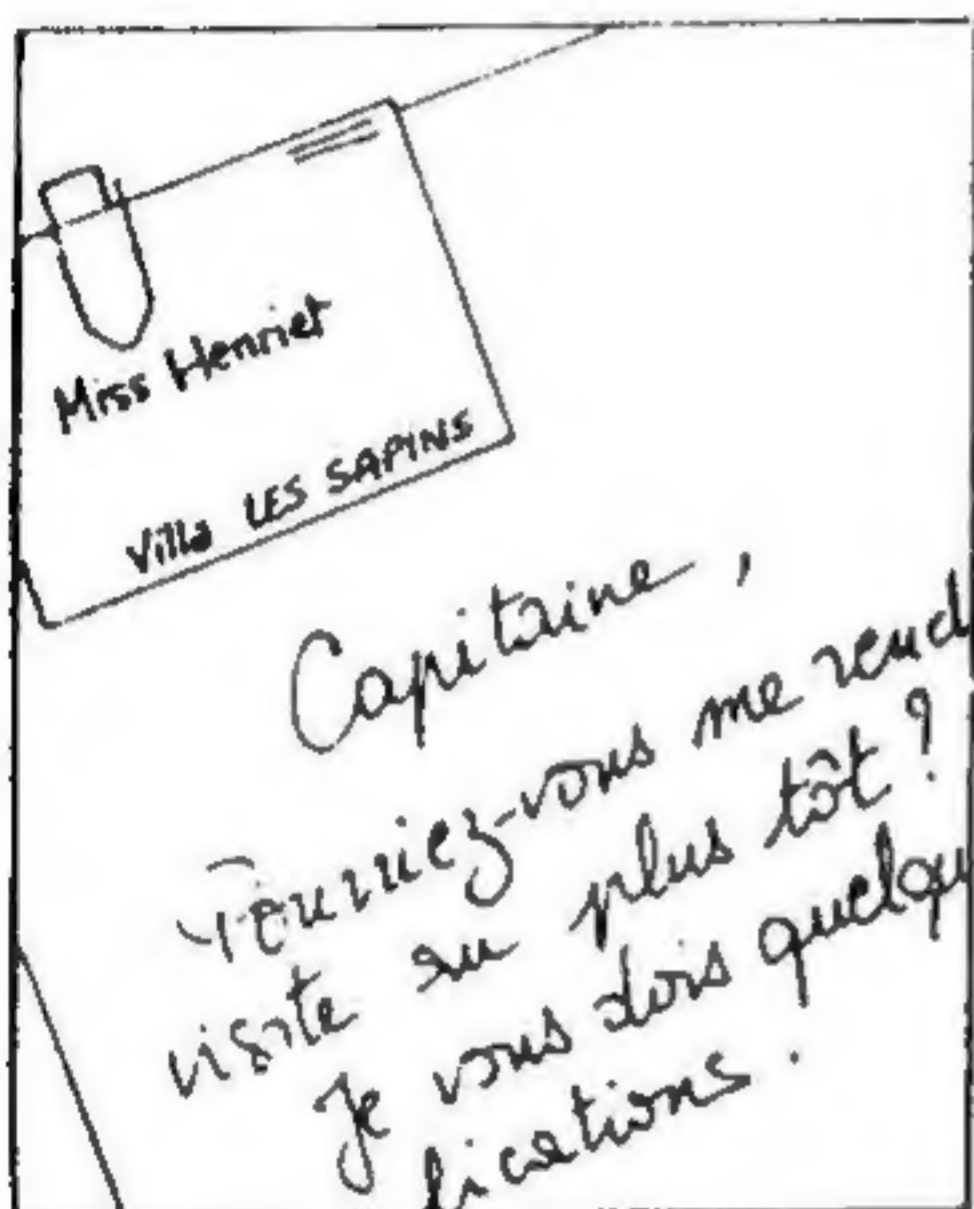 Miss Henriet
Villa LES SAPINS
Capitaine,
Pourriez-vous me rend
visite au plus tôt ?
Je vous dois quelqu
lications.